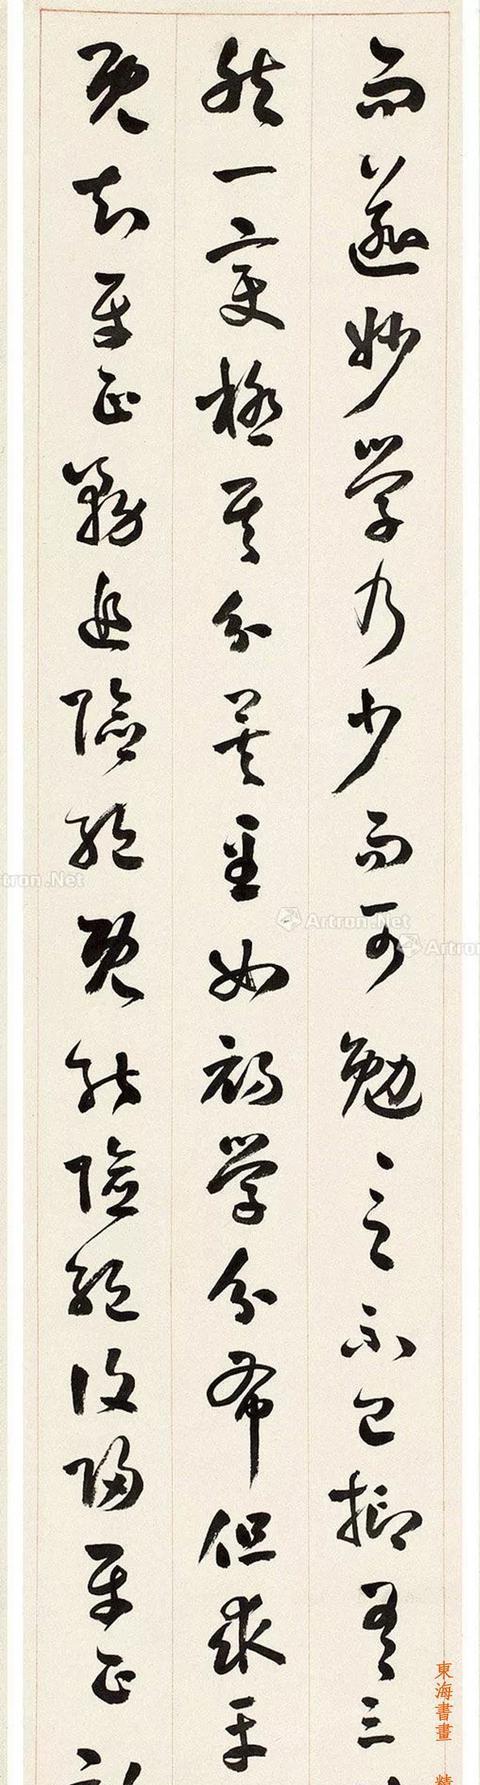 而逾妙學乃少而可勉々之不已抑有三
然一變極其分矣至如初學分布但求平
既知平正務追險絕既能險絕復歸平正
東海書畫
Artron.Net
Artron
Artron.Net